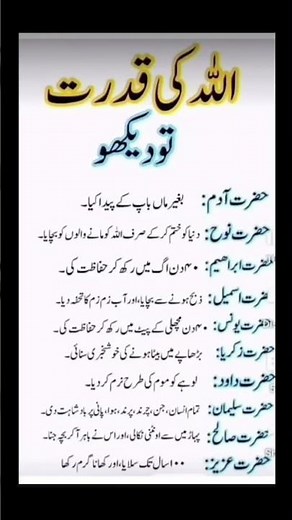 اللہ کی قدرت
تو دیکھو
حضرت آدم: بغیر ماں باپ کے پیدا کیا۔
حضرت نوح: دنیا کو ختم کر کے صرف اللہ کو ماننے والوں کو بچایا۔
حضرت ابراھیم: ۴۰ دن آگ میں رکھ کر حفاظت کی۔
حضرت اسمعیل: ذبح ہونے سے بچایا، اور آب زم زم کا تحفہ دیا۔
حضرت یونس: ۴۰ دن مچھلی کے پیٹ میں رکھ کر حفاظت کی۔
حضرت زکریا: بڑھاپے میں بیٹا ہونے کی خوشخبری سنائی۔
حضرت داود: لوہے کو موم کی طرح نرم کر دیا۔
حضرت سلیمان: تمام انسان، جن، چرند، پرند، ہوا، پانی پر بادشاہت دی۔
حضرت صالح: پہاڑ میں سے اونٹنی نکالی، اور اس نے باہر آ کر بچہ جنا۔
حضرت عزیز: ۱۰۰ سال تک سلایا، اور کھانا گرم رکھا